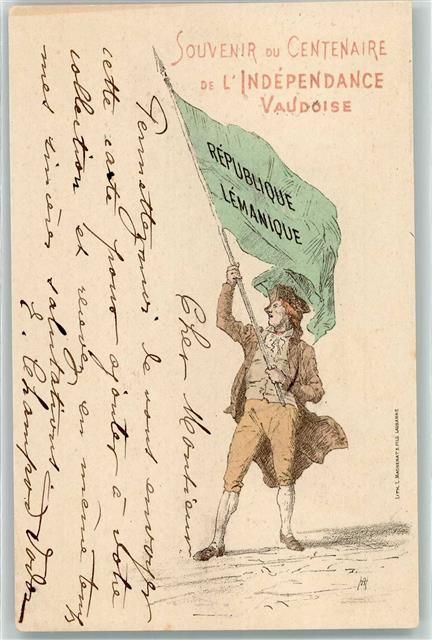 SOUVENIR DU CENTENAIRE
DE L'INDÉPENDANCE
VAUDOISE
RÉPUBLIQUE
LÉMANIQUE
Cher Monsieur.
Permettez moi de vous envoyer
cette carte pour ajouter à votre
collection et recevez en même temps
mes sincères salutations
E. Champod
LITH. L. MAGNENAT & FILS LAUSANNE